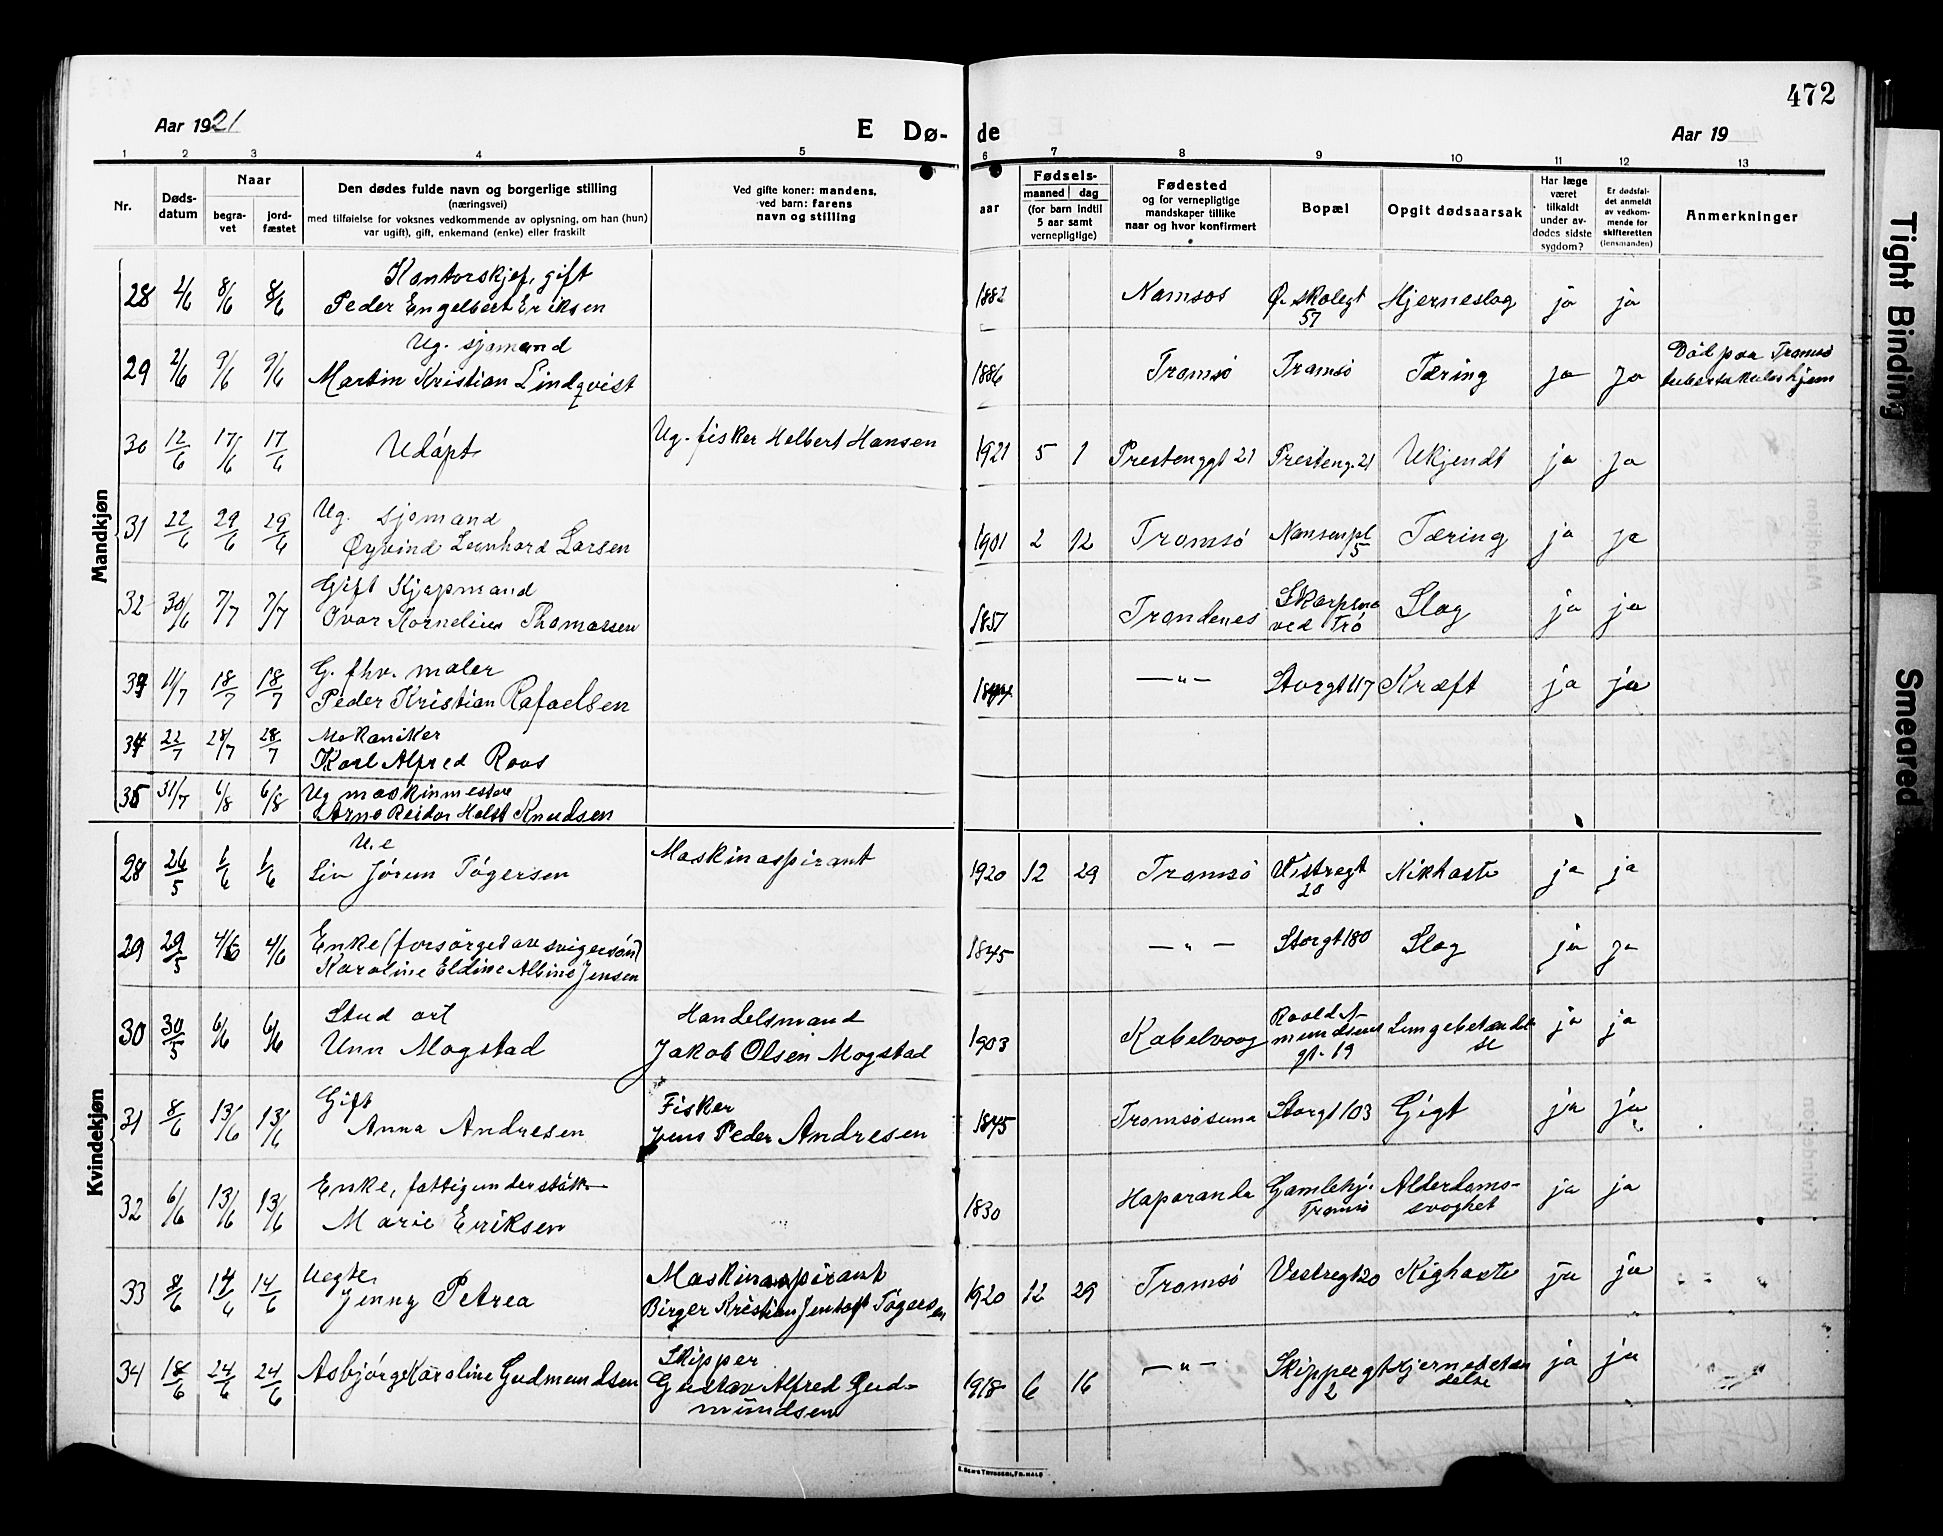 472
Aar 1921
E Dø-
de
Aar 19
1 2 3 4 5 6 7 8 9 10 11 12 13
Nr.
Døds-
datum
Naar
begra-
vet
jord-
fæstet
Den dødes fulde navn og borgerlige stilling
(næringsvei)
med tilføielse for voksnes vedkommende av oplysning, om han (hun)
var ugift), gift, enkemand (enke) eller fraskilt
Ved gifte koner: mandens,
ved barn: farens
navn og stilling
aar
Fødsels-
maaned dag
(for barn indtil
5 aar samt
vernepligtige)
Fødested
og for vernepligtige
mandskaper tillike
naar og hvor konfirmert
Bopæl
Opgit dødsaarsak
Har læge
været
tilkaldt
under av-
dødes sidste
sygdom?
Er dødsfal-
det anmeldt
av vedkom-
mende for
skifteretten
(lensmanden)
Anmerkninger
Mandkjøn
28 2/6 8/6 8/6 Kontorskjef, gift
Peder Engelbert Eriksen
1882 Namsos Ø. skolegt
57
Hjerneslag ja ja
29 2/6 9/6 9/6 Ug. sjømand
Martin Kristian Lindqvist
1886 Tromsø Tromsø Tæring ja ja Død paa Tromsø
tuberkuloshjem
30 12/6 17/6 17/6 Udøpt Ug. fisker Helbert Hansen
1921 5 1 Prestenggt 21 Presteng. 21 Ukjendt ja ja
31 22/6 29/6 29/6 Ug. sjømand
Øyvind Leonhard Larsen
1901 2 12 Tromsø Nansenpl
5
Tæring ja ja
32 30/6 7/7 7/7 Gift Kjøpmand
Ivar Kornelius Thomassen
1857 Trondenes
ved Trø
Slag ja ja
33 11/7 18/7 18/7 G. fhv. maler
Peder Kristian Rafaelsen
—"— Storgt 117 Kræft ja ja
34 22/7 28/7 28/7 Mekaniker
Karl Alfred Roos
35 31/7 6/8 6/8 Ug maskinmester
Arne Reidar Holst Knudsen
Kvindekjøn
28 26/5 1/6 1/6 U.e
Liv Jørun Tøgersen
Maskinaspirant
1920 12 29 Tromsø Vestregt
20
Kikhoste ja ja
29 29/5 4/6 4/6 Enke (forsørget av svigersøn)
Karoline Eldine Albine Jensen
1845 —"— Storgt 180 Slag ja ja
30 30/5 6/6 6/6 Stud art
Unn Mogstad
Handelsmand
Jakob Olsen Mogstad
1903 Kabelvaag Roald A-
mundsens
gt. 19
Lungebetændel
se
ja ja
31 8/6 13/6 13/6 Gift
Anna Andresen
Fisker
Jens Peder Andresen
1845 Tromsøsund Storgt 103 Gigt ja ja
32 6/6 13/6 13/6 Enke, fattigunderstøtt.
Marie Eriksen
1830 Haparanda Gamlehj.
Tromsø
Alderdoms-
svaghet
ja ja
33 8/6 14/6 14/6 Uegte,
Jenny Petrea
Maskinaspirant
Birger Kristian Jentoft Tøgersen
1920 12 29 Tromsø Vestregt 20 Kighoste ja ja
34 18/6 24/6 24/6 Asbjørg Karoline Gudmundsen
Skipper
Gustav Alfred Gud-
mundsen
1918 6 16 —"— Skippergt
2
Hjernebetæn
delse
ja ja
Tight Binding
Smeared